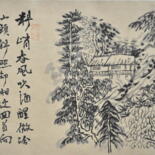 料峭春風吹酒醒微冷
山頭斜照却相迎回首向